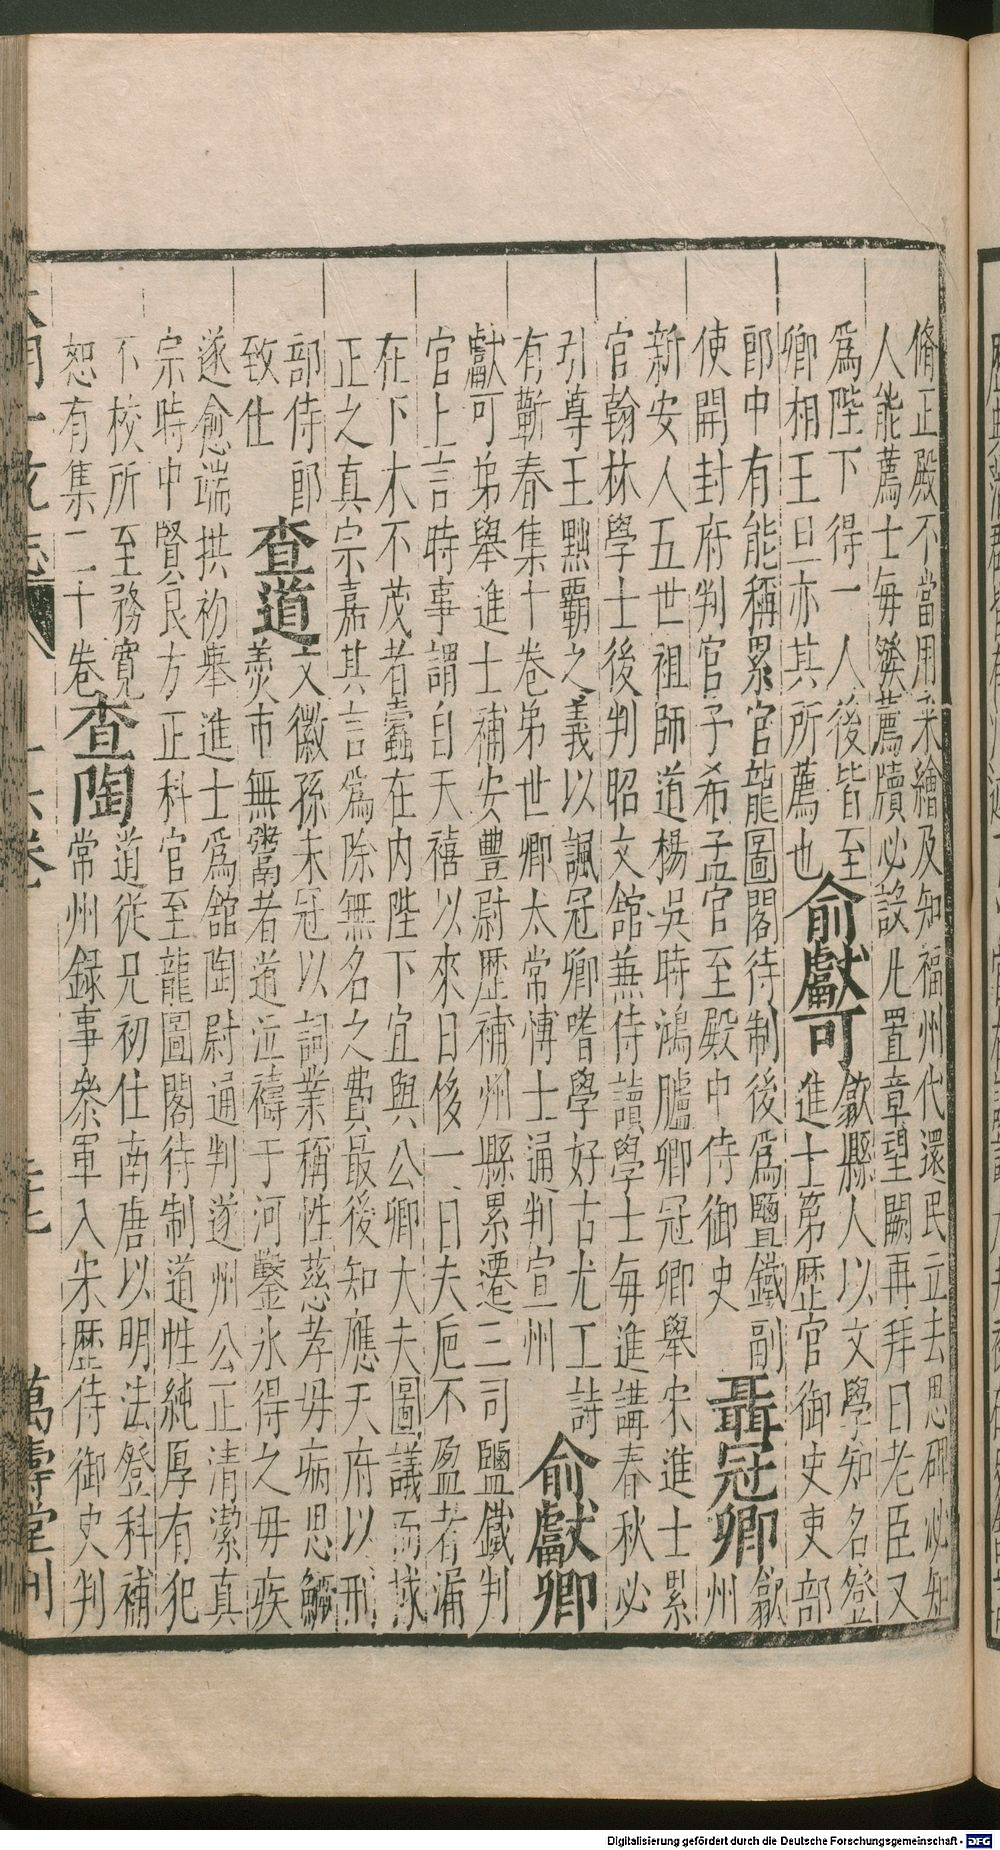 脩正殿不當用采繪及知福州代還民立去思碑必知
人能薦士毎發薦牘必設几置章望闕再拜曰老臣又
爲陛下得一人後皆至
卿相王旦亦其所薦也俞獻可歙縣人以文學知名登
進士第歴官御史吏部
郎中有能稱累官龍圖閣待制後爲鹽鐵副
使開封府判官子希孟官至殿中侍御史聶冠卿歙州
新安人五世祖師道楊吳時鴻臚卿冠卿舉宋進士累
官翰林學士後判昭文舘兼侍讀學士毎進講春秋必
引尊王黜覇之義以諷冠卿嗜學好古尤工詩
有蘄春集十卷弟世卿太常愽士通判宣州俞獻卿
獻可弟舉進士補安豐尉歴補州縣累遷三司鹽鐵判
官上言時事謂自天禧以來日侈一日夫巵不盈者漏
在下木不茂者蠹在内陛下宜與公卿大夫圖議而㧕
正之真宗嘉其言爲除無名之費最後知應天府以刑
部侍郎
致仕查道文徽孫未冠以詞業稱性慈孝毋病思鱖
羮市無鬻者道泣禱于河鑿氷得之毋疾
遂愈端拱初舉進士爲舘陶尉通判遂州公正清潔真
宗時中賢良方正科官至龍圖閣待制道性純厚有犯
不校所至務寛
恕有集二十卷查陶道從兄初仕南唐以明法登科補
常州録事叅軍入宋歴侍御史判
萬壽堂刊
Digitalisierung gefördert durch die Deutsche Forschungsgemeinschaft - DFG